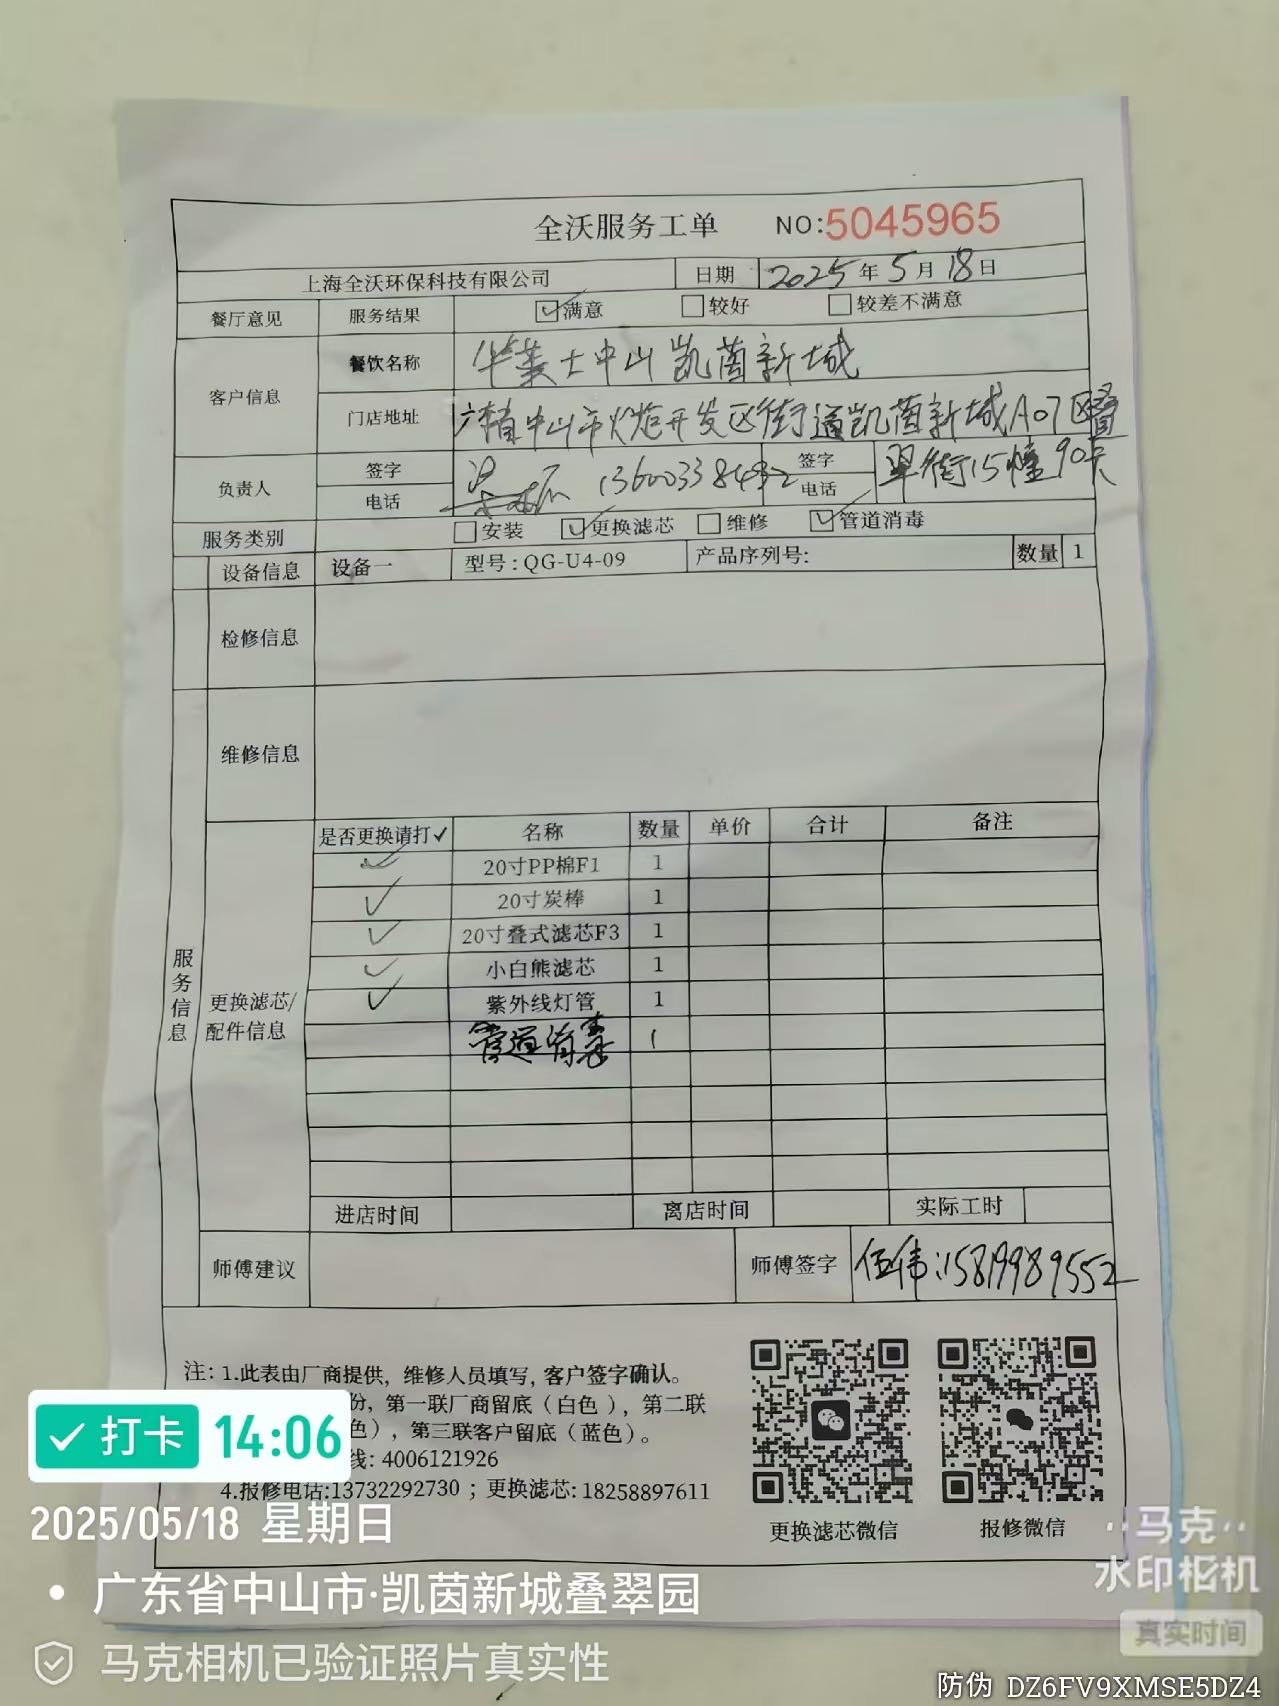 全沃服务工单 NO:5045965
上海全沃环保科技有限公司 日期 2025年5月18日
餐厅意见 服务结果 ☑满意 □较好 □较差不满意
客户信息 餐饮名称 华莱士中山凯茵新城
门店地址 广东省中山市火炬开发区街道凯茵新城A07区叠翠街15幢90卡
负责人 签字 电话 13600338432 签字 电话
服务类别 □安装 ☑更换滤芯 □维修 ☑管道消毒
设备信息 设备一 型号:QG-U4-09 产品序列号: 数量 1
检修信息
维修信息
服务信息
更换滤芯/配件信息
是否更换请打✓ 名称 数量 单价 合计 备注
✓ 20寸PP棉F1 1
✓ 20寸炭棒 1
✓ 20寸叠式滤芯F3 1
✓ 小白熊滤芯 1
✓ 紫外线灯管 1
管道消毒 1
进店时间 离店时间 实际工时
师傅建议 师傅签字 伍伟:15819989552
注: 1.此表由厂商提供, 维修人员填写, 客户签字确认。
份, 第一联厂商留底（白色）, 第二联
色）, 第三联客户留底（蓝色）。
线: 4006121926
4.报修电话:13732292730 ; 更换滤芯: 18258897611
更换滤芯微信 报修微信
✓打卡 14:06
2025/05/18 星期日
• 广东省中山市·凯茵新城叠翠园
马克相机已验证照片真实性
马克
水印相机
真实时间
防伪 DZ6FV9XMSE5DZ4